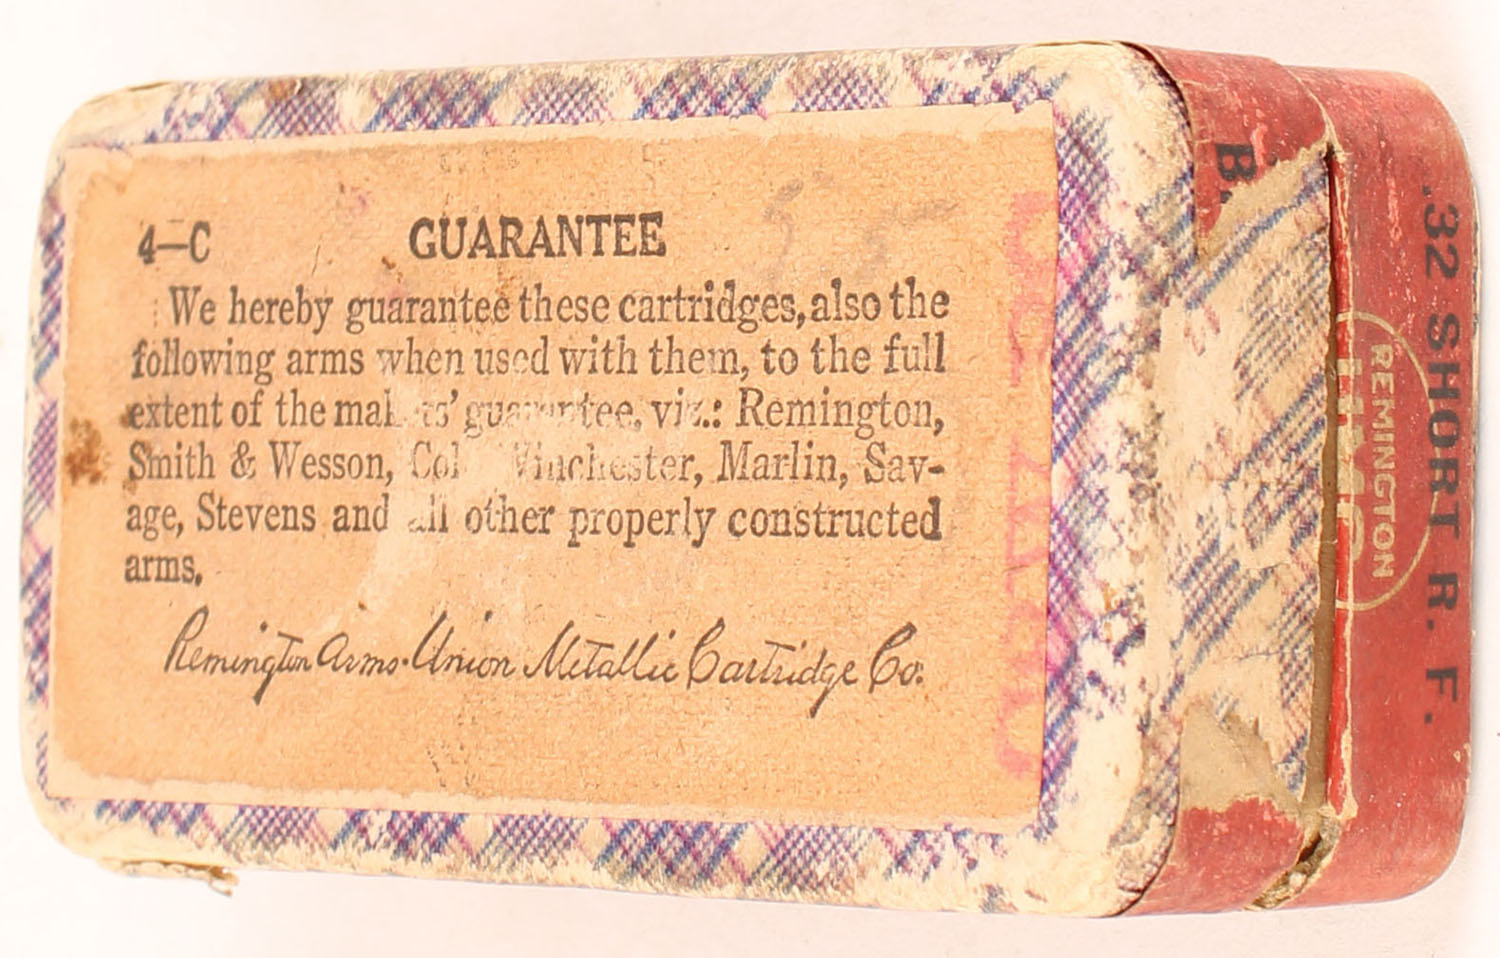 4–C GUARANTEE
We hereby guarantee these cartridges, also the
following arms when used with them, to the full
extent of the makers' guarantee, viz.: Remington,
Smith & Wesson, Colt, Winchester, Marlin, Sav-
age, Stevens and all other properly constructed
arms.
Remington Arms-Union Metallic Cartridge Co.
.32 SHORT R. F.
REMINGTON
UMC